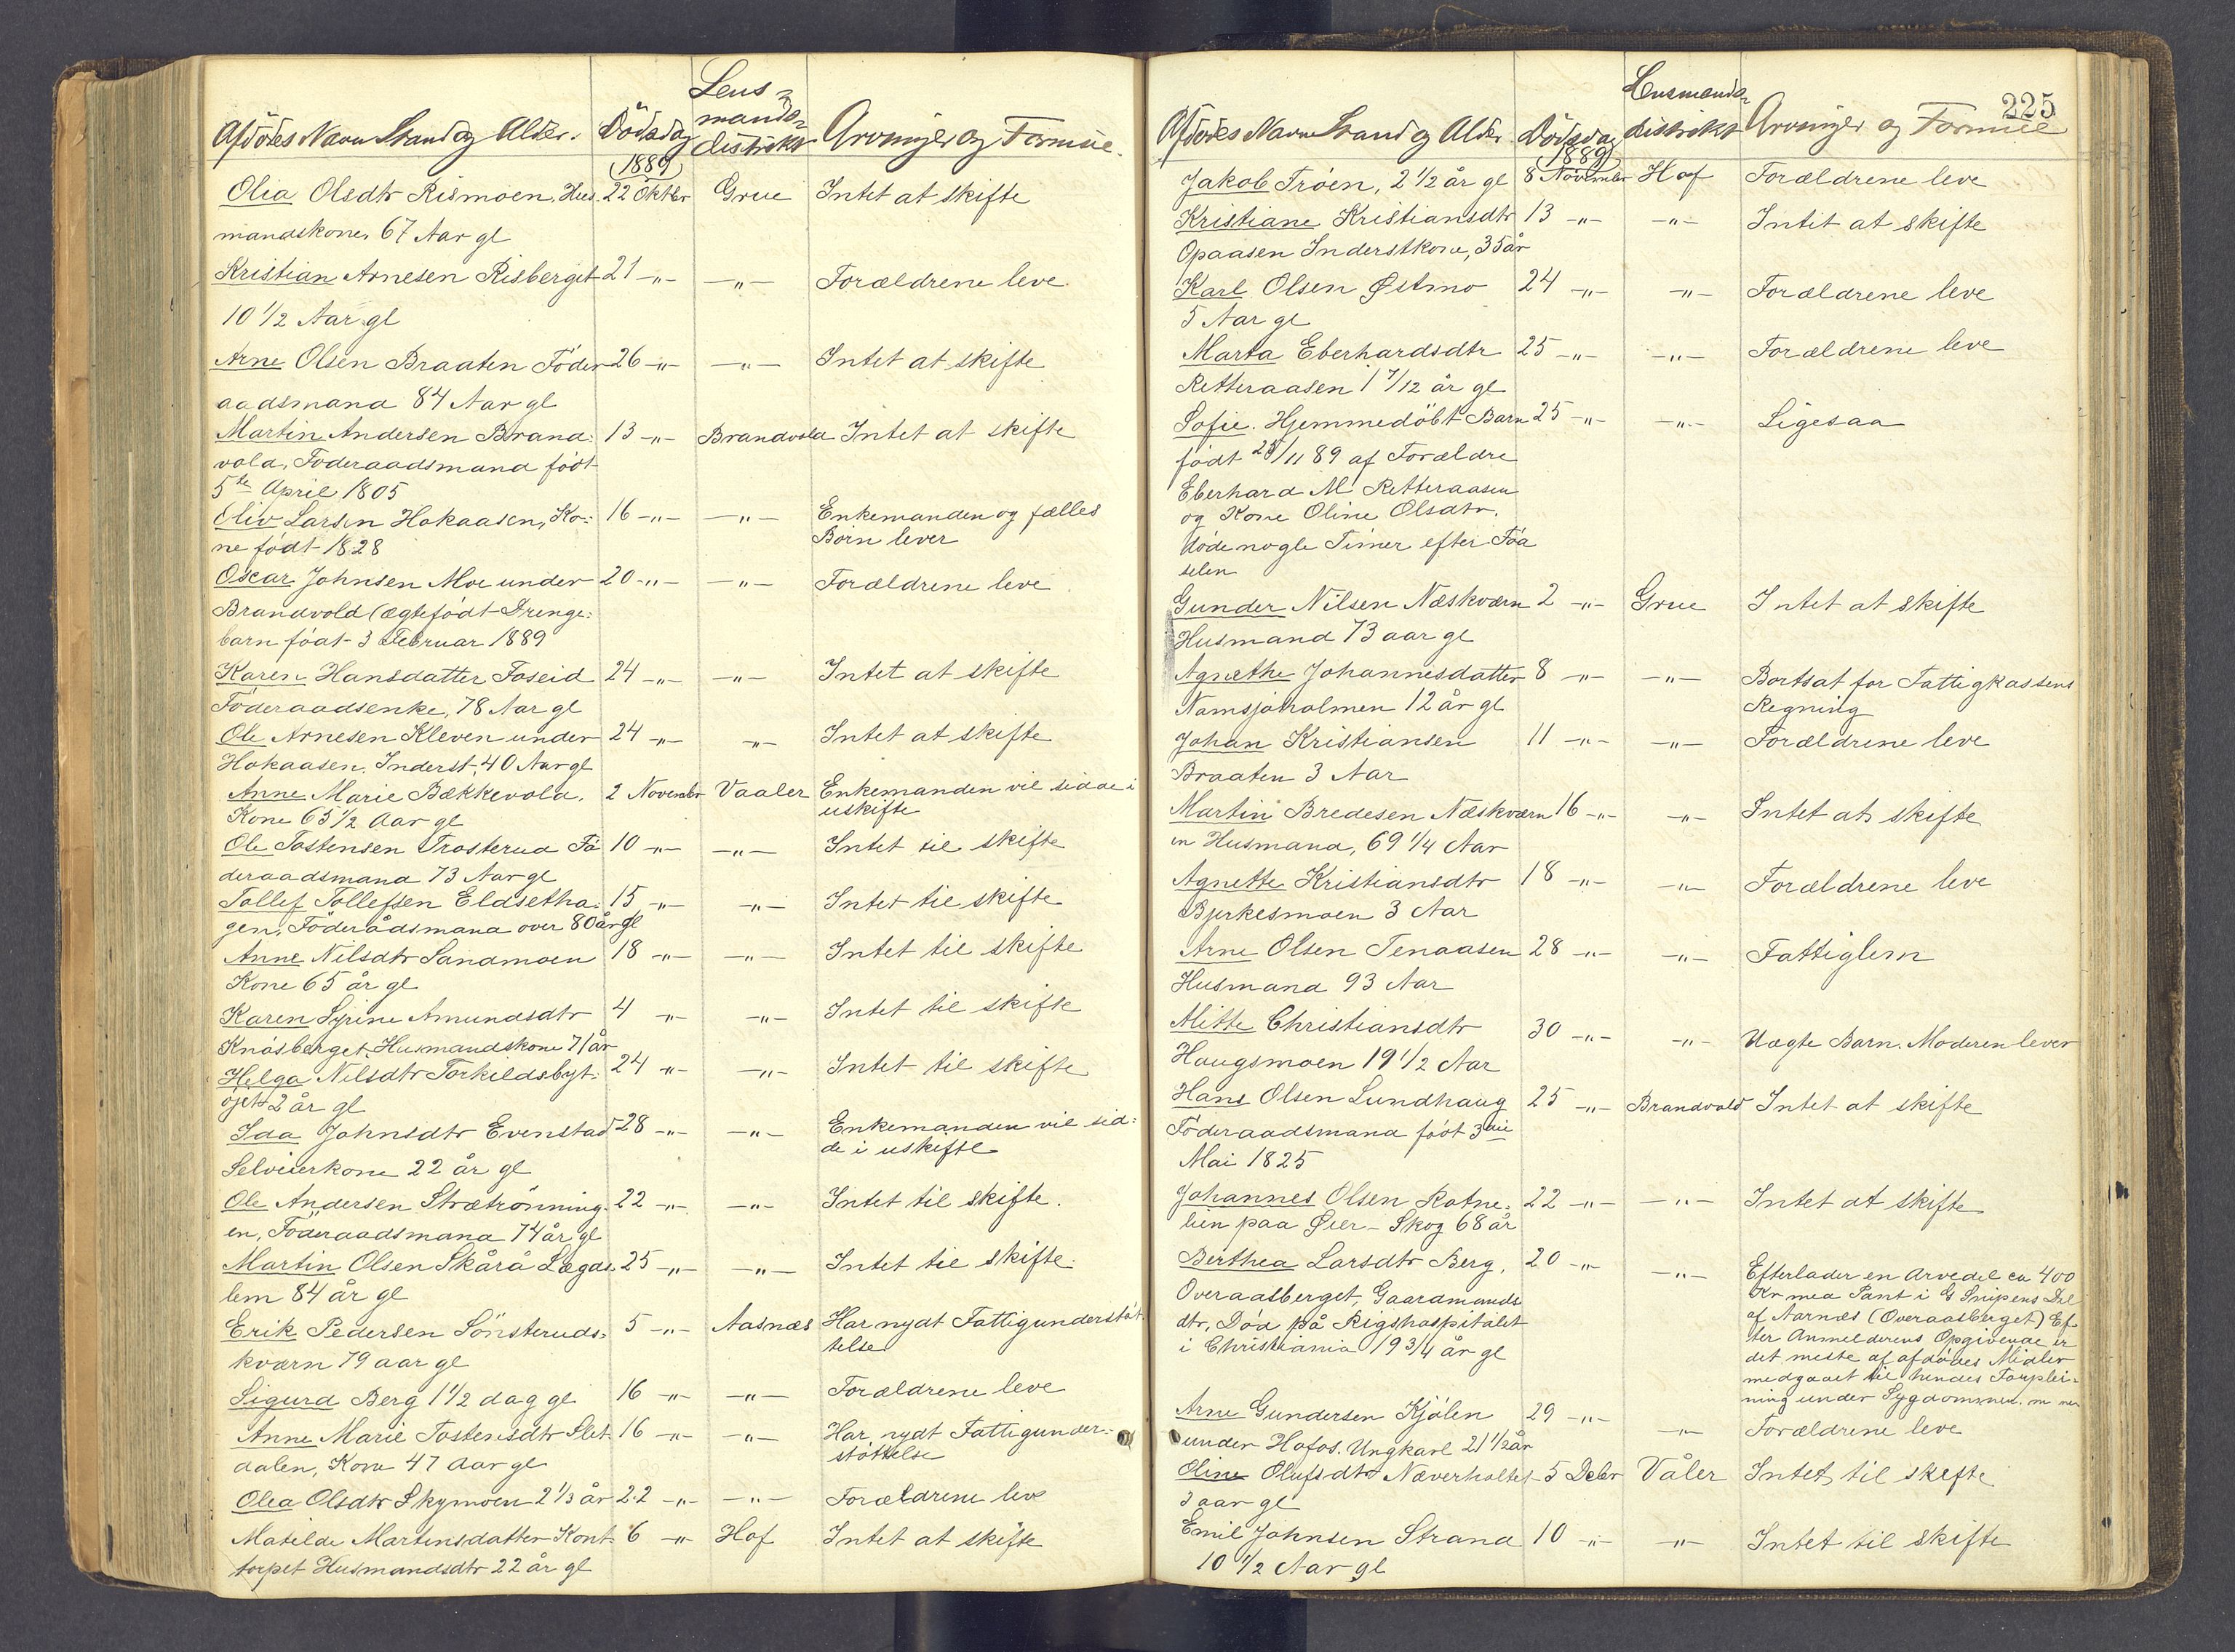 Lens-
mands-
Afdödes Navn Stand og Alder. Dödsdag distrikt Arvinger og Formue.
1889
Olia Olsdtr Rismoen, Hus- 22 Oktbr Grue Intet at skifte
mandskone, 67 Aar gl
Kristian Arnesen Risberget 21 -"- -"- Forældrene leve.
10 1/2 Aar gl
Arne Olsen Braaten Föder- 26 -"- -"- Intet at skifte
aadsmand 84 Aar gl
Martin Andersen Brand- 13 -"- Brandvold Intet at skifte
vold, Föderaadsmand födt
5te April 1805
Eliv Larsen Hokaasen, Ko- 16 -"- -"- Enkemanden og fælles
ne födt 1828 Börn lever
Oscar Johnsen Moe under 20 -"- -"- Forældrene leve
Brandvold (ægtefödt Drenge-
barn födt 3 Februar 1889
Karen Hansdatter Foseid 24 -"- -"- Intet at skifte
Föderaadsenke, 78 Aar gl
Ole Arnesen Kleven under 24 -"- -"- Intet at skifte
Hokaasen, Inderst, 40 Aar gl
Anne Marie Bækkevold, 2 Novembr Vaaler Enkemanden vil sidde i
Kone 65 1/2 Aar gl uskifte
Ole Tostensen Trosterud Fö 10 -"- -"- Intet til skifte
deraadsmand 73 Aar gl
Tollef Tollefsen Eldsetha- 15 -"- -"- Intet til skifte
gen, Föderådsmand over 80 år gl
Anne Nilsdtr Sandmoen 18 -"- -"- Intet til skifte
Kone 65 år gl
Karen Syrine Amundsdtr 4 -"- -"- Intet til skifte
Knösberget, Husmandskone 71 år
Helga Nilsdtr Torkildsbyt- 24 -"- -"- Intet til skifte
öjet 2 år gl
Ida Johnsdtr Evenstad 28 -"- -"- Enkemanden vil sid-
Selveierkone 22 år gl de i uskifte
Ole Andersen Strætrönning- 22 -"- -"- Intet til skifte.
en, Föderaadsmand 74 år gl
Martin Olsen Skårå Lægds- 25 -"- -"- Intet til skifte.
lem 84 år gl
Erik Pedersen Sönsteruds- 5 -"- Aasnæs Har nydt Fattigunderstöt
kværn 79 aar gl telse
Sigurd Berg 1 1/2 dag gl 16 -"- -"- Forældrene leve
Anne Marie Tostensdtr Slet- 16 -"- -"- Har nydt Fattigunder-
dalen, Kone 47 Aar gl stöttelse
Olea Olsdtr Skymoen 2 1/3 år 22 -"- -"- Forældrene leve
Matilde Martinsdatter Kont- 6 -"- Hof Intet at skifte
torpet Husmandsdtr 22 år gl
225
Lensmands-
Afdödes Navn Stand og Alder Dödsdag distrikt Arvinger og Formue
1889
Jakob Tröen, 2 1/2 år gl 8 Novembr Hof Forældrene leve
Kristiane Kristiansdtr 13 -"- -"- Intet at skifte
Opaasen Inderstkone, 35 år
Karl Olsen Østmo 24 -"- -"- Forældrene leve
5 Aar gl
Marta Eberhardsdtr 25 -"- -"- Forældrene leve
Retteraasen 1 7/12 år gl
Sofie. Hjemmedöbt Barn 25 -"- -"- Ligesaa
födt 25/11 89 af Forældre
Eberhard M Retteraasen
og Kone Oline Olsdtr.
döde nogle Timer efter Föd
selen
Gunder Nilsen Næskværn 2 -"- Grue Intet at skifte
Husmand 73 aar gl
Agnethe Johannesdatter 8 -"- -"- Bortsat for Fattigkassens
Namsjøholmen 12 år gl Regning
Johan Kristiansen 11 -"- -"- Forældrene leve
Braaten 3 Aar
Martin Bredesen Næskværn 16 -"- -"- Intet at skifte
en Husmand, 69 1/4 Aar
Agnette Kristiansdtr 18 -"- -"- Forældrene leve
Bjerkesmoen 3 Aar
Arne Olsen Tenaasen 28 -"- -"- Fattiglem
Husmand 93 Aar
Mitte Christiansdtr 30 -"- -"- Uægte Barn. Moderen lever
Haugsmoen 19 1/2 Aar
Hans Olsen Lundhaug 25 -"- Brandvold Intet at skifte
Föderaadsmand födt 3die
Mai 1825
Johannes Olsen Rotne- 22 -"- -"- Intet at skifte
lien paa Øier-Skog 68 år
Berthea Larsdtr Berg, 20 -"- -"- Efterlader en Arvedel ca 400
Overaasberget, Gaardmands Kr med Pant i G Snipens Del
dtr, Död på Rigshospitalet af Aarnæs (Overaasberget) Ef-
i Christiania 19 3/4 år gl ter Anmelderens Opgivende er
det meste af afdödes Midler
medgaaet til hendes Forplei-
ning under Sygdommen.
Arne Gundersen Kjölen 29 -"- -"- Forældrene leve
under Hofos. Ungkarl 21 1/2 år
Oline Olufsdtr Næverholtet 5 Debr Våler Intet til skifte
3 aar gl
Emil Johnsen Strand 10 -"- -"- Intet til skifte
10 1/2 Aar gl